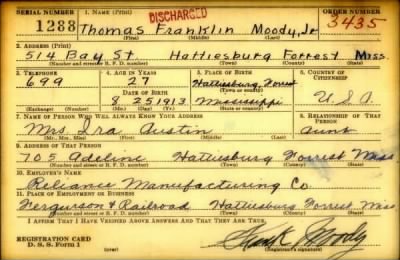 SERIAL NUMBER 1. NAME (Print) ORDER NUMBER
DISCHARGED
1288 Thomas Franklin Moody, Jr 3435
(First) (Middle) (Last)
2. ADDRESS (Print)
514 Bay St Hattiesburg Forrest Miss.
(Number and street or R. F. D. number) (Town) (County) (State)
3. TELEPHONE 4. AGE IN YEARS 5. PLACE OF BIRTH 6. COUNTRY OF CITIZENSHIP
699 27 Hattiesburg, Forrest
DATE OF BIRTH (Town or county)
8 25 1913 Mississippi U.S.A.
(Exchange) (Number) (Mo.) (Day) (Yr.) (State or country)
7. NAME OF PERSON WHO WILL ALWAYS KNOW YOUR ADDRESS 8. RELATIONSHIP OF THAT PERSON
Mrs. Ira Austin Aunt
(Mr., Mrs., Miss) (First) (Middle) (Last)
9. ADDRESS OF THAT PERSON
705 Adeline Hattiesburg Forrest Miss
(Number and street or R. F. D. number) (Town) (County) (State)
10. EMPLOYER'S NAME
Reliance Manufacturing Co.
11. PLACE OF EMPLOYMENT OR BUSINESS
Ferguson & Railroad Hattiesburg Forrest Miss
(Number and street or R. F. D. number) (Town) (County) (State)
I AFFIRM THAT I HAVE VERIFIED ABOVE ANSWERS AND THAT THEY ARE TRUE.
REGISTRATION CARD
D. S. S. Form 1 Moody
(Registrant's signature)